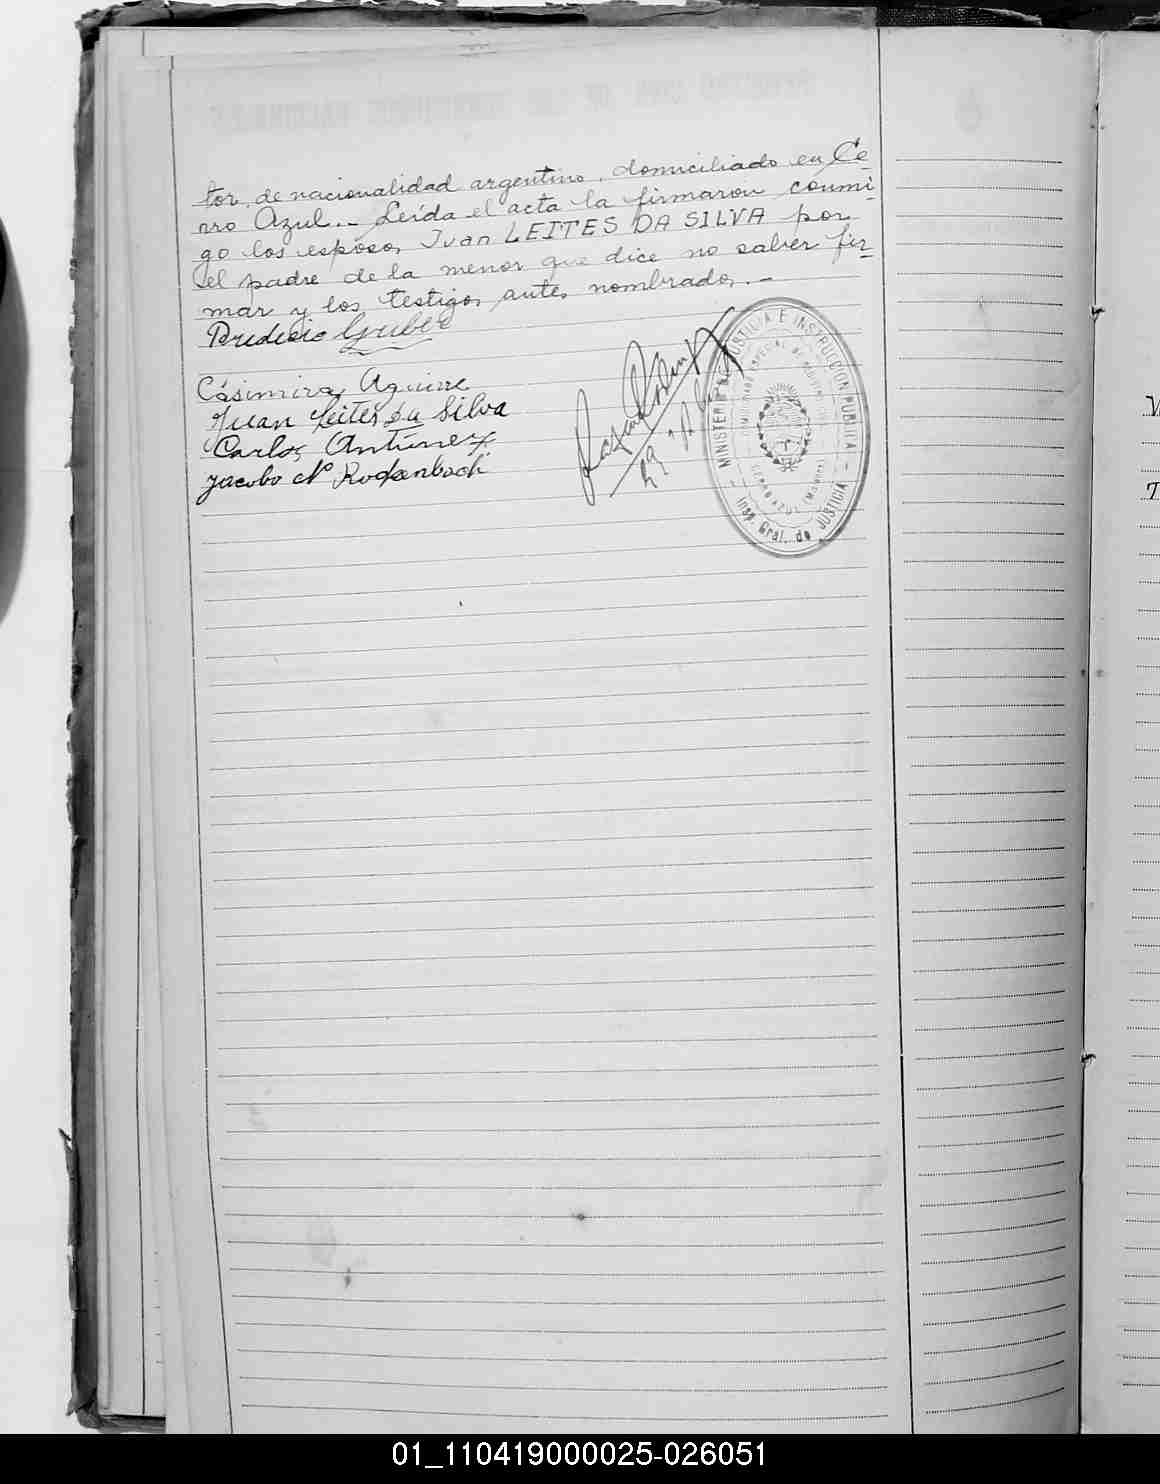 tor, de nacionalidad argentino, domiciliado en Ce-
rro Azul.- Leída el acta la firmaron conmi-
go los esposos, Juan LEITES DA SILVA por
el padre de la menor que dice no saber fir-
mar y los testigos antes nombrados.-
Casimira Aguirre
Juan Leites da Silva
Carlos Antunez
Jacobo N Rodenbach
MINISTERIO DE JUSTICIA E INSTRUCCION PUBLICA
CERRO AZUL (Misiones)
Insp. Gral. de JUSTICIA
01_110419000025-026051